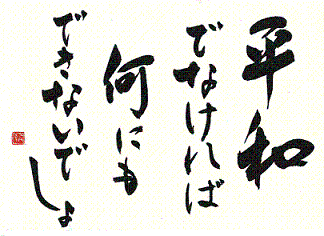 平和
でなければ
何にも
できないでしょ